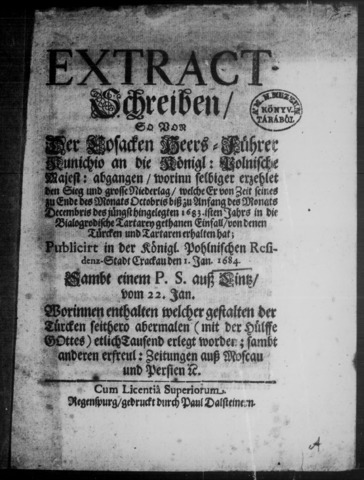 EXTRACT-
Schreiben/
So Von
Der Cosacken Heers-Führer
Kunichio an die Königl: Polnische
Majest: abgangen/ worinn selbiger erzehlet
den Sieg und grosse Niederlag/ welche Er von Zeit seines
zu Ende des Monats Octobris biß zu Anfang des Monats
Decembris des jüngst hingelegten 1683.isten Jahrs in die
Bialogrodische Tartarey gethanen Einfall/ von denen
Türcken und Tartaren erhalten hat;
Publicirt in der Königl. Pohlnischen Resi-
denz-Stadt Crackau den 1. Jan. 1684.
Sambt einem P. S. auß Lintz/
vom 22. Jan.
Worinnen enthalten welcher gestalten der
Türcken seithero abermalen (mit der Hülffe
GOttes) etlich Tausend erlegt worden; sambt
anderen erfreul: Zeitungen auß Moscau
und Persien ꝛc.
Cum Licentiâ Superiorum.
Regenspurg/ gedruckt durch Paul Dalsteinern.
KÖNYV-
TÁRÁBÓL